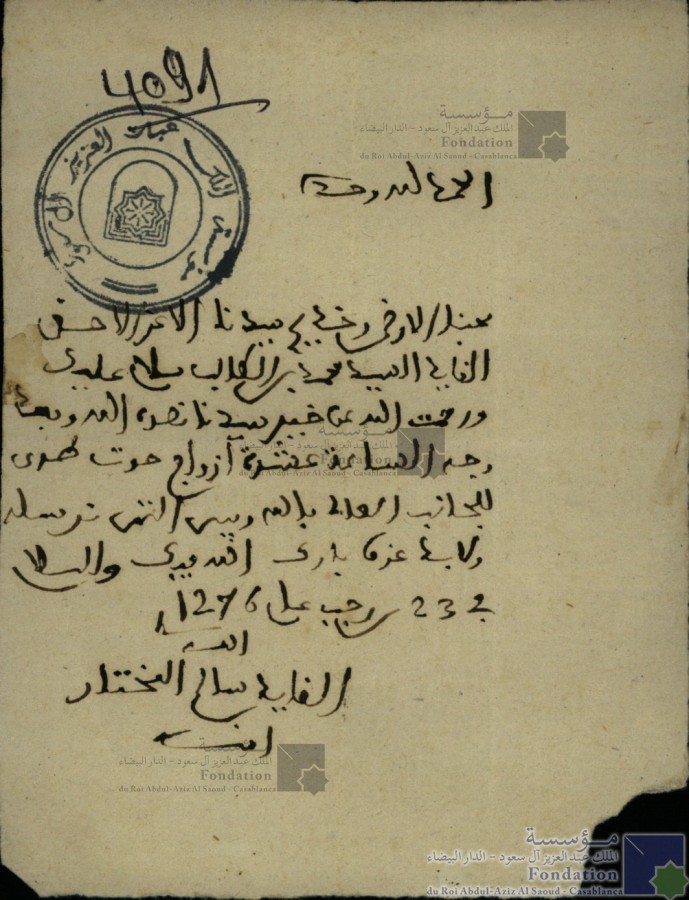 4091
مؤسسة الملك عبد العزيز آل سعود
مؤسسة
الملك عبد العزيز آل سعود - الدار البيضاء
Fondation
du Roi Abdul-Aziz Al Saoud - Casablanca
الحمد لله وحده
سيدنا الاعز الا
القايد السيد محمد بن الطالب سلام عليك
ورحمت الله عن خير سيدنا نصره الله وبعد
وجه الساعة عشرة أزواج حوت
للجانب العالي بالله وبين الثمن نرسله
بارك الله فيك والسلام
في 23 رجب عام 1276
القايد سالم المختار
امنه الله
مؤسسة
الملك عبد العزيز آل سعود - الدار البيضاء
Fondation
du Roi Abdul-Aziz Al Saoud - Casablanca
مؤسسة
الملك عبد العزيز آل سعود - الدار البيضاء
Fondation
du Roi Abdul-Aziz Al Saoud - Casablanca